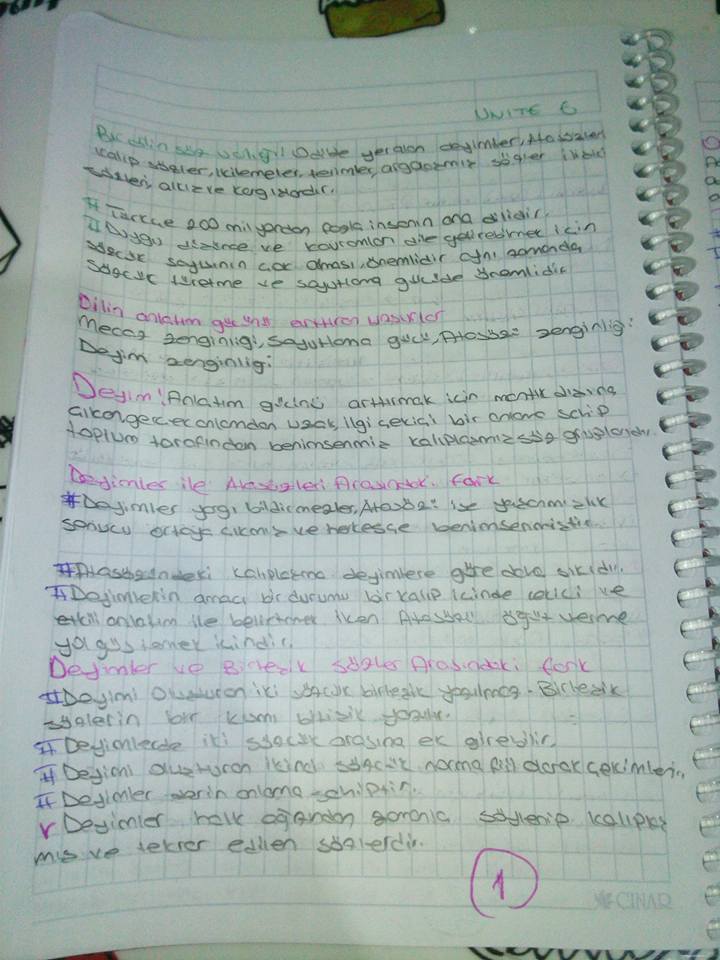 ÜNİTE 6
Bir dilin söz varlığı! Dilde yeralan deyimler, Atasözleri
kalıp sözler, ikilemeler, terimler, argo
sözleri, alkış ve kargışlardır.
# Türkçe 200 milyondan fazla insanın ana dilidir.
# Duygu düşünce ve kavramları dile getirebilmek için
sözcük sayısının çok olması, önemlidir aynı zamanda
Sözcük türetme ve soyutlama gücüde önemlidir
Dilin anlatım gücünü arttıran unsurlar
Mecaz zenginliği, Soyutlama gücü, Atasözü zenginliği
Deyim zenginliği
Deyim! Anlatım gücünü arttırmak için mantık dışına
çıkan gerçek anlamdan uzak, ilgi çekici bir anlama sahip
toplum tarafından benimsenmiş kalıplaşmış söz
Deyimler ile Atasözleri Arasındaki fark
# Deyimler yargı bildirmezler, Atasözü ise yaşanmışlık
sonucu ortaya çıkmış ve herkesçe benimsenmiştir.
# Atasözündeki kalıplaşma deyimlere göre daha sıkıdır.
# Deyimlerin amacı bir durumu bir kalıp içinde çekici ve
etkili anlatım ile belirtmek iken Atasözü öğüt verme
yol göstermek içindir.
Deyimler ve Birleşik sözler Arasındaki fark
# Deyimi Oluşturan iki sözcük birleşik yazılmaz. Birleşik
sözlerin bir kısmı bitişik yazılır.
# Deyimlerde iki sözcük arasına ek girebilir.
# Deyimi oluşturan ikinci sözcük normal fiil olarak çekimlenir.
# Deyimler derin anlama sahiptir.
v Deyimler halk ağzından zamanla söylenip kalıplaş
mış ve tekrar edilen sözlerdir.
1
ÇINAR